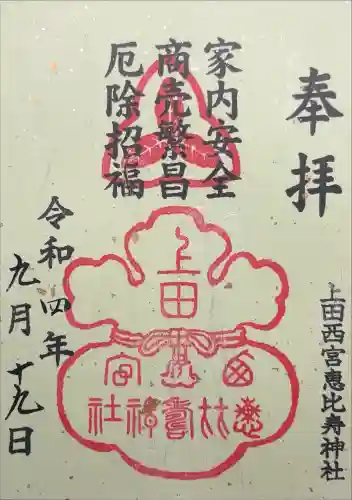 奉拝
家内安全
商売繁昌
厄除招福
上田西宮恵比寿神社
上田
西宮
恵比寿神社
令和四年
九月十九日